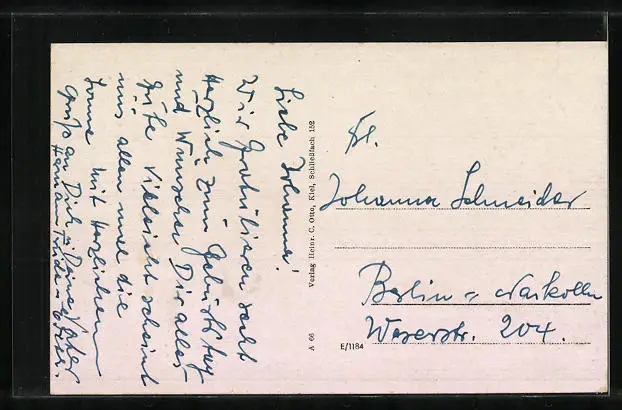 Liebe Johanna!
Wir gratulieren recht
herzlich zum Geburtstag
und wünschen Dir alles
Gute Vielleicht scheint
uns allen mal die
Sonne mit herzlichem
Gruß an Dich u. Deine Vater
Verlag Heinr. C. Otto, Kiel, Schließfach 152
A 66
E/1184
Frl.
Johanna Schneider
Berlin = Neukölln
Weserstr. 204.